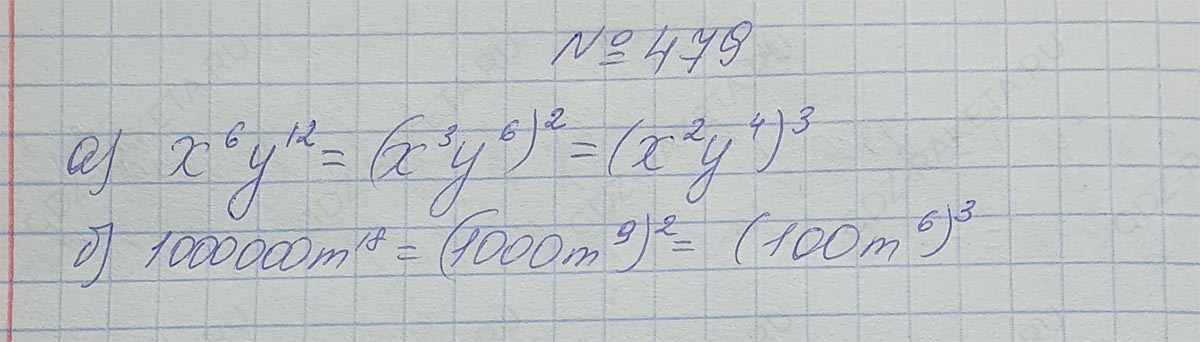 № 479
а) x⁶y¹² = (x³y⁶)² = (x²y⁴)³
б) 1000000m¹⁸ = (1000m⁹)² = (100m⁶)³